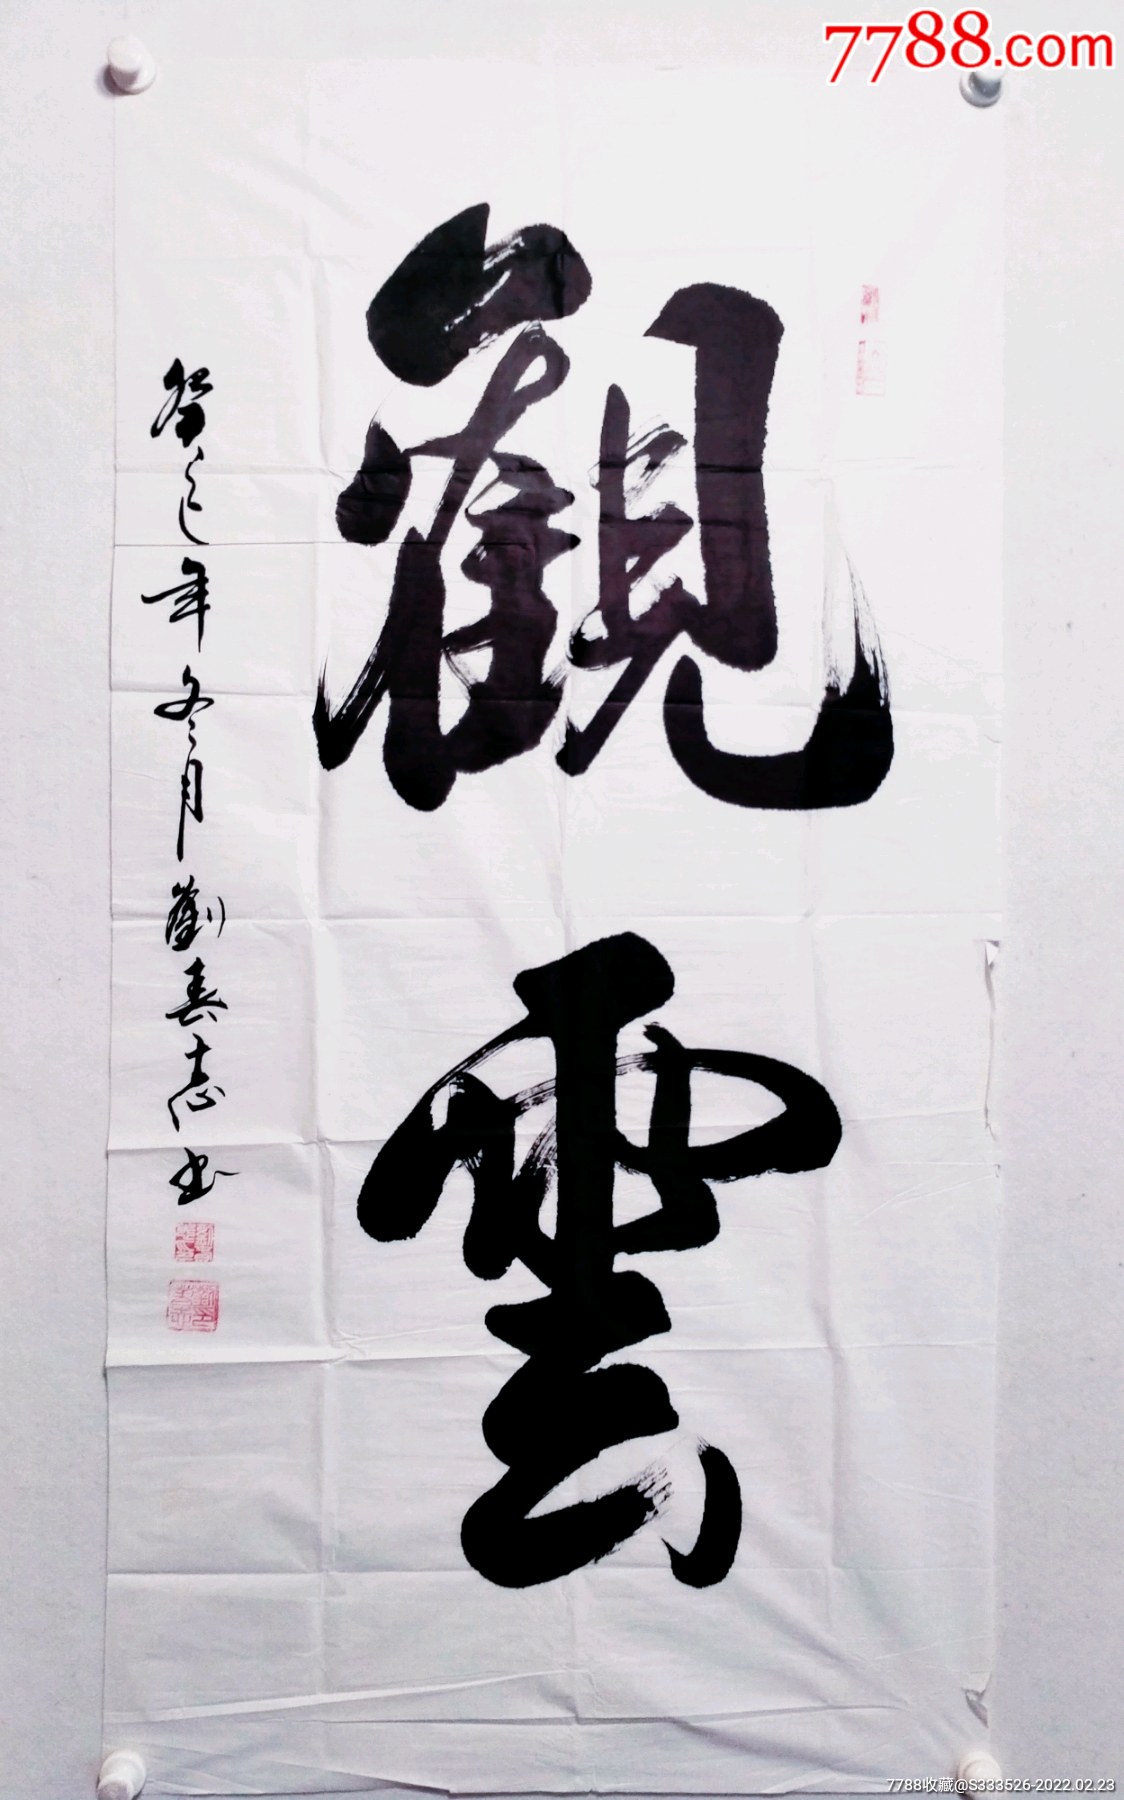 7788.com
觀雲
癸巳年冬月劉春志书
7788收藏@S333526-2022.02.23